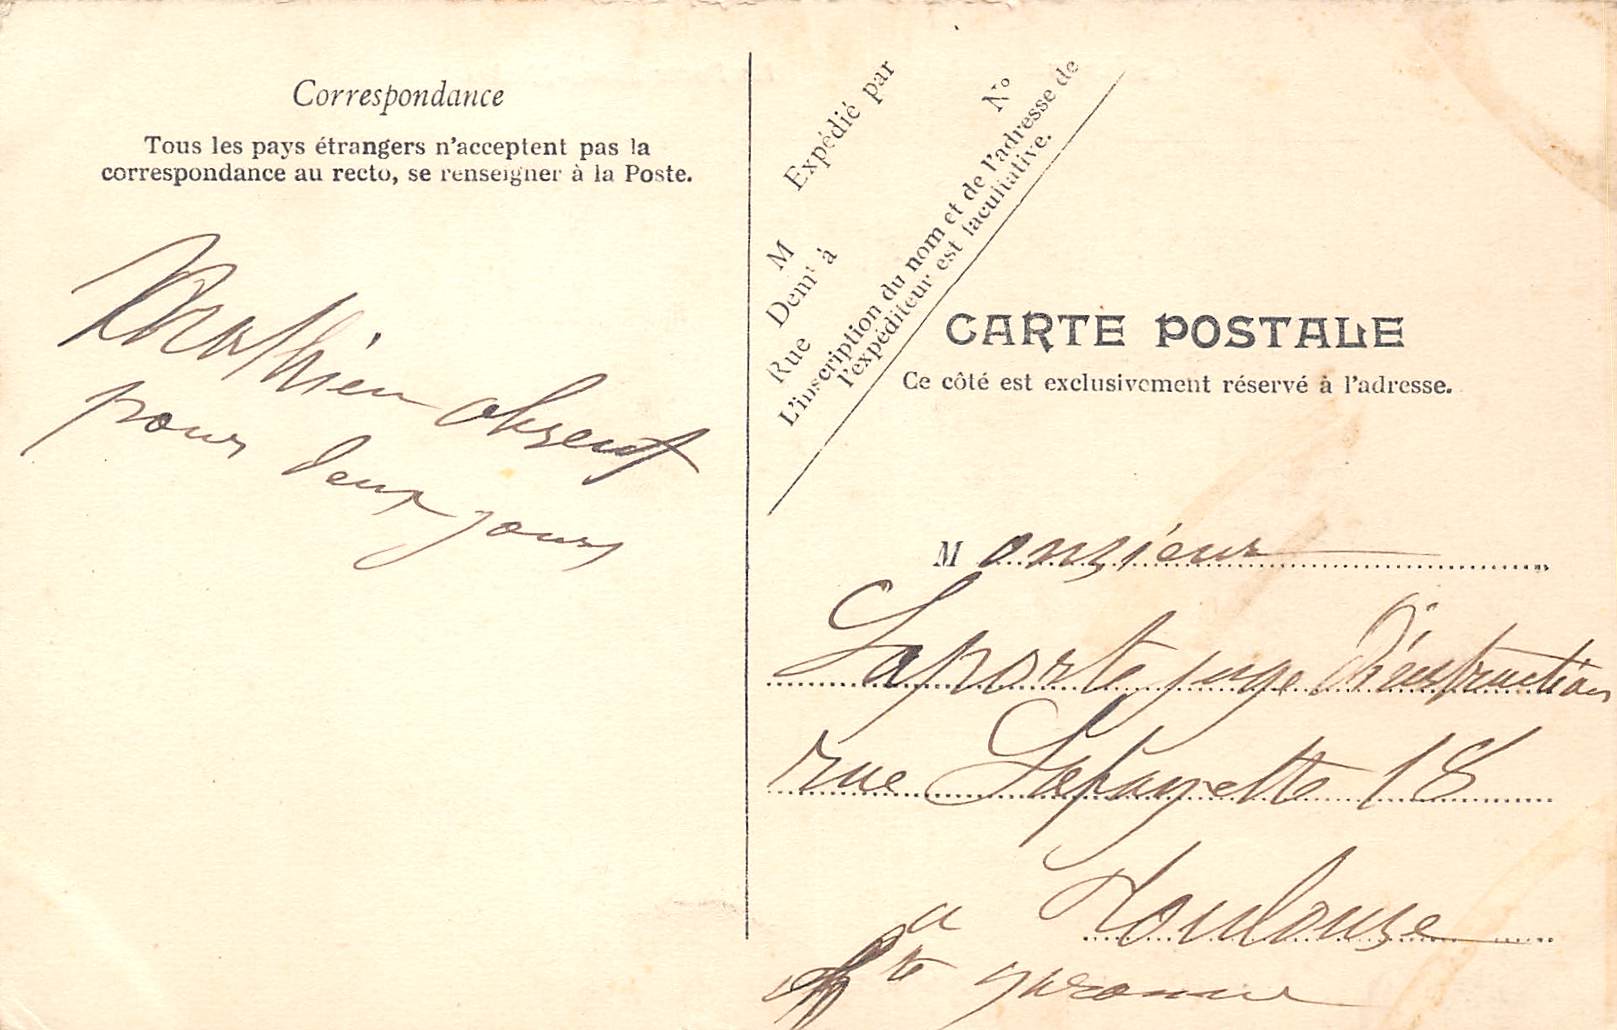 Correspondance
Tous les pays étrangers n'acceptent pas la
correspondance au recto, se renseigner à la Poste.
Mathieu absent
pour deux jours
Expédié par
M
N°
Demt à
Rue
L'inscription du nom et de l'adresse de
l'expéditeur est facultative.
CARTE POSTALE
Ce côté est exclusivement réservé à l'adresse.
Monsieur
Laporte juge d'instruction
rue Lafayette 18
a Toulouse
Hte garonne